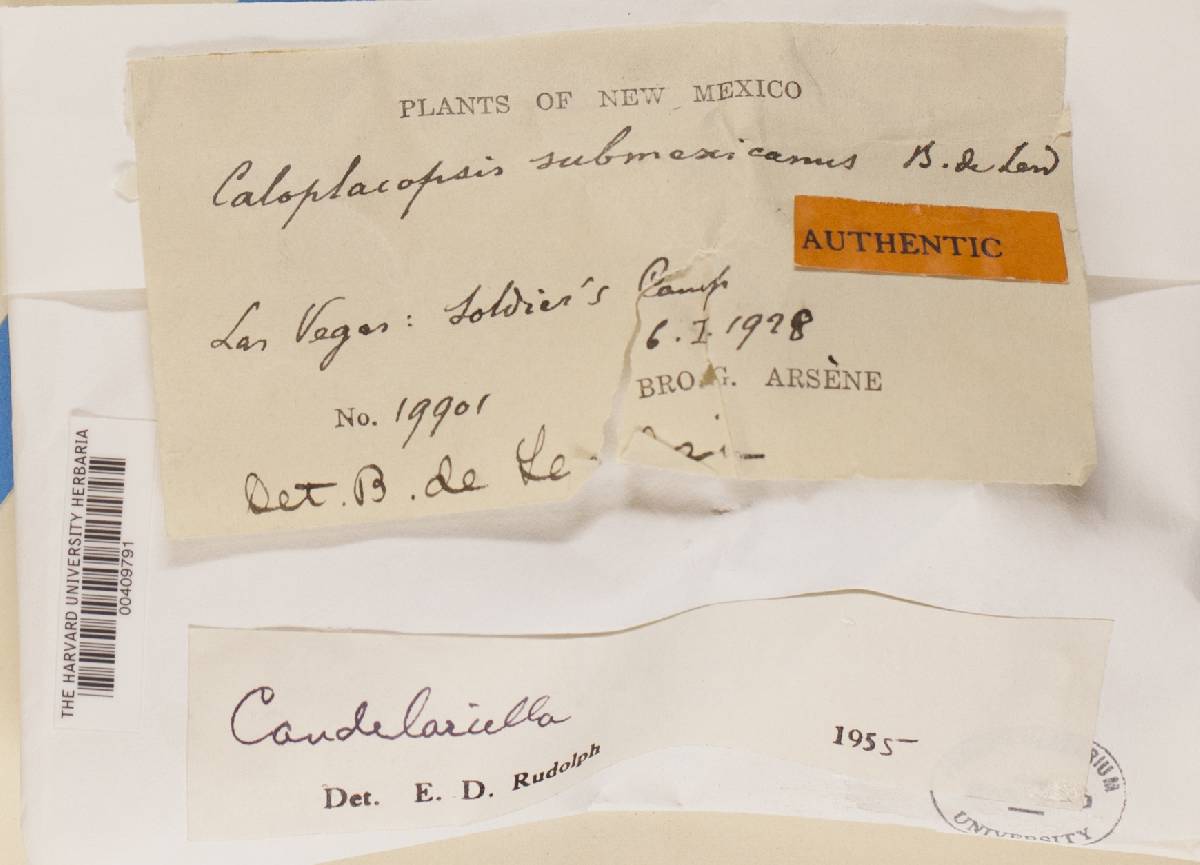 PLANTS OF NEW MEXICO
Caloplacopsis submexicanus B. de Lesd
AUTHENTIC
Las Vegas: Soldier's Camp
6. I. 1928
No. 19901
BRO. G. ARSÈNE
Det. B. de Le
THE HARVARD UNIVERSITY HERBARIA
00409791
Candelariella
Det. E. D. Rudolph
1955
UNIVERSITY